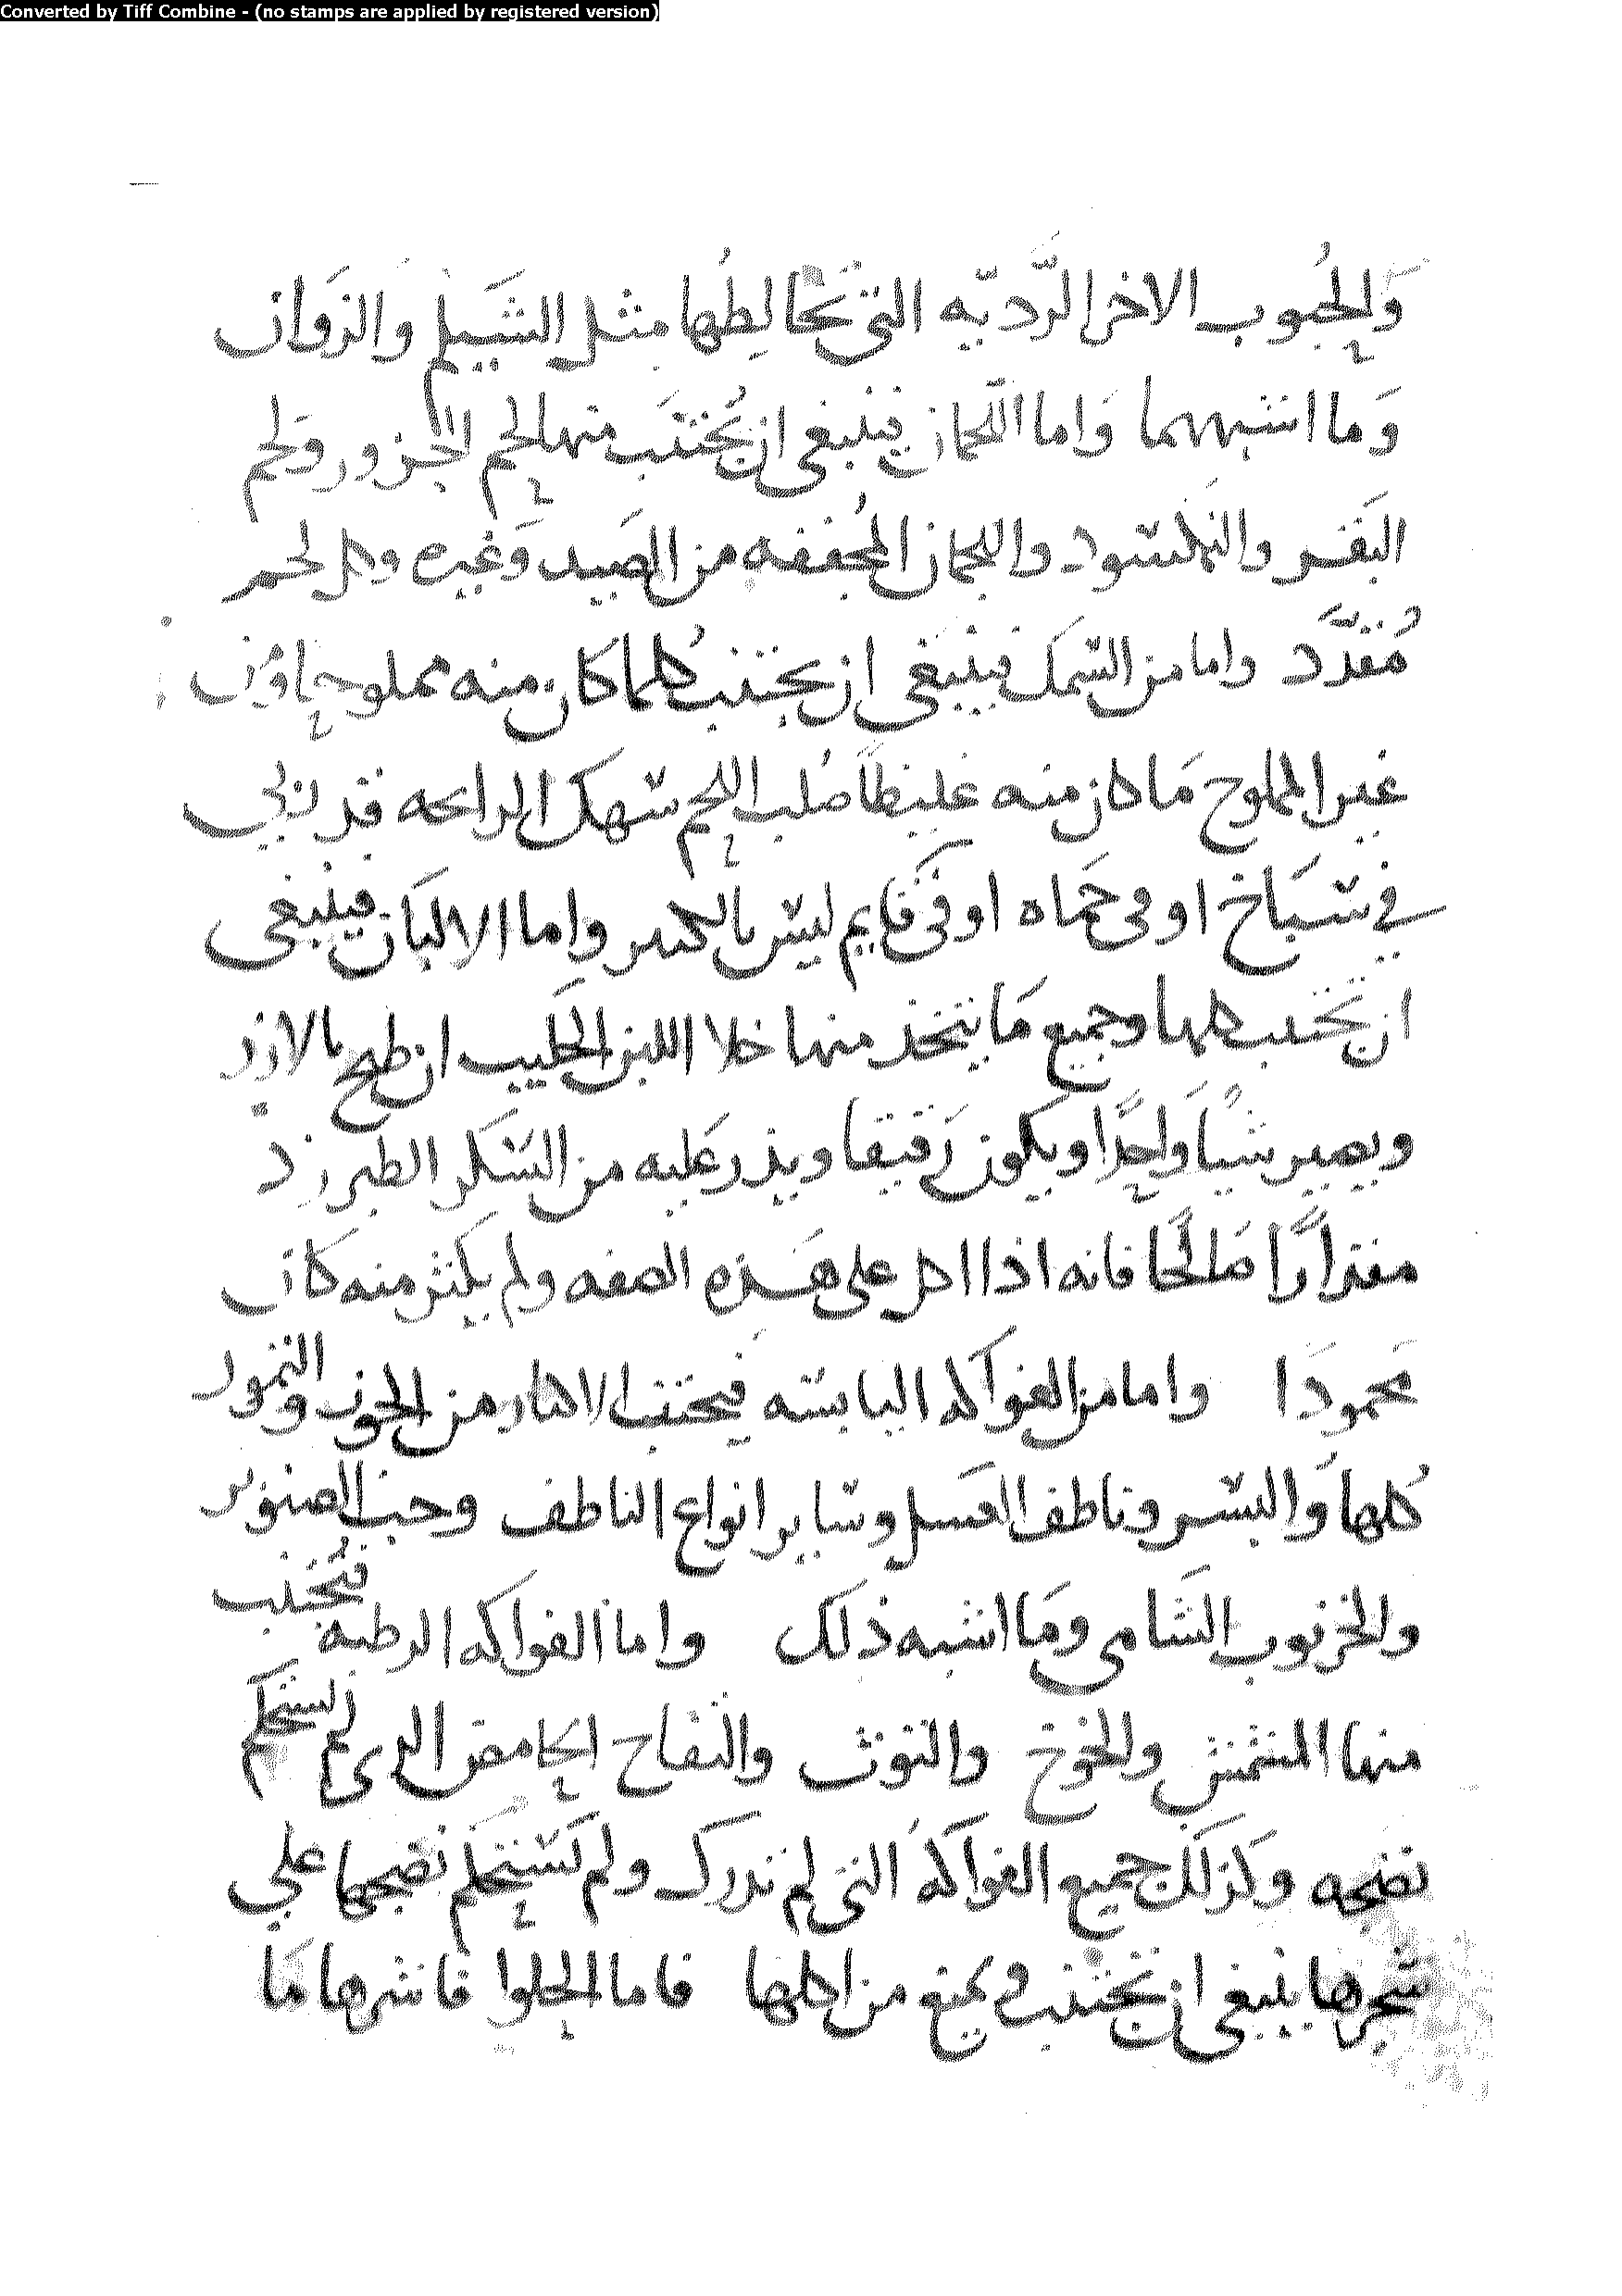 Converted by Tiff Combine - (no stamps are applied by registered version)
وَالحُبوب الاخر الرَّديّه التي تُخالِطُها مثل الشَيلم والزوَان
وَما اشبههما وَاما اللحمان فينبغي ان يُجتنَب منها لحم الجزور وَلحم
البَقر والنمكسود واللحمان المُجففه من الصَيد وَغيره وكل لحم
مُقدَّد واما من السَّمك فينبَغي ان يجتنب كُلما كان منه مملوحًا وَمن
غير المملوح مَا كان منه غليظًا صُلب اللحم سَهك الرايحه قد تربي
في سبَاخ او في حَماه او في قايم ليس بالكدر واما الالبَان فينبغي
ان تجتنب كلها وجميع مَا يتخذ منها خلا اللبن الحَليب ان طبخ بالارز
ويصير شيًا وَاحِدًا ويكون رَقيقا ويذر عَليه من السَكر الطبرزد
مقدارًا صَالحًا فانه اذا اكل على هَذه الصفه ولم يكثر منه كان
محمودَا واما من الفواكه اليابسَه فيجتنب الاكثار من الجوز والتمور
كلها وَالبسر وناطف العسَل وسَاير انواع الناطف وحب الصنوبر
والخرنوب الشَامي ومَا اشبه ذلك واما الفواكه الرطبه فتُجتنب
منها المشمش والخوخ والتوث والتفاح الحامض الذي لم يستحكم
نضجه وكذلك جميع الفواكه التي لم تدرك ولم يَستحكم نضجها علي
شجرها ينبغي ان تجتنب ويمنع من اكلها فاما الحلوا فاشرها مَا